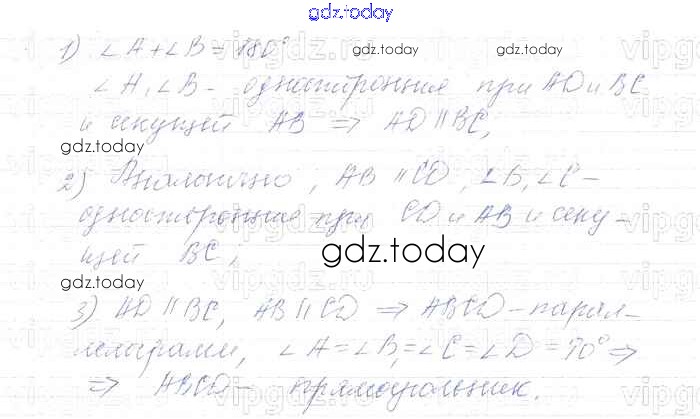 gdz.today
1) ∠A+∠B=180°
gdz.today gdz.today
∠A, ∠B- односторонние при AD и BC
и секущей AB ⇒ AD ∥ BC,
gdz.today
2) Аналогично, AB ∥ CD, ∠B, ∠C-
односторонние при CD и AB и секу-
щей BC,
gdz.today
gdz.today gdz.today
3) AD ∥ BC, AB ∥ CD ⇒ ABCD-парал-
лелограмм, ∠A=∠B=∠C=∠D=90° ⇒
gdz.today gdz.today
⇒ ABCD- прямоугольник.